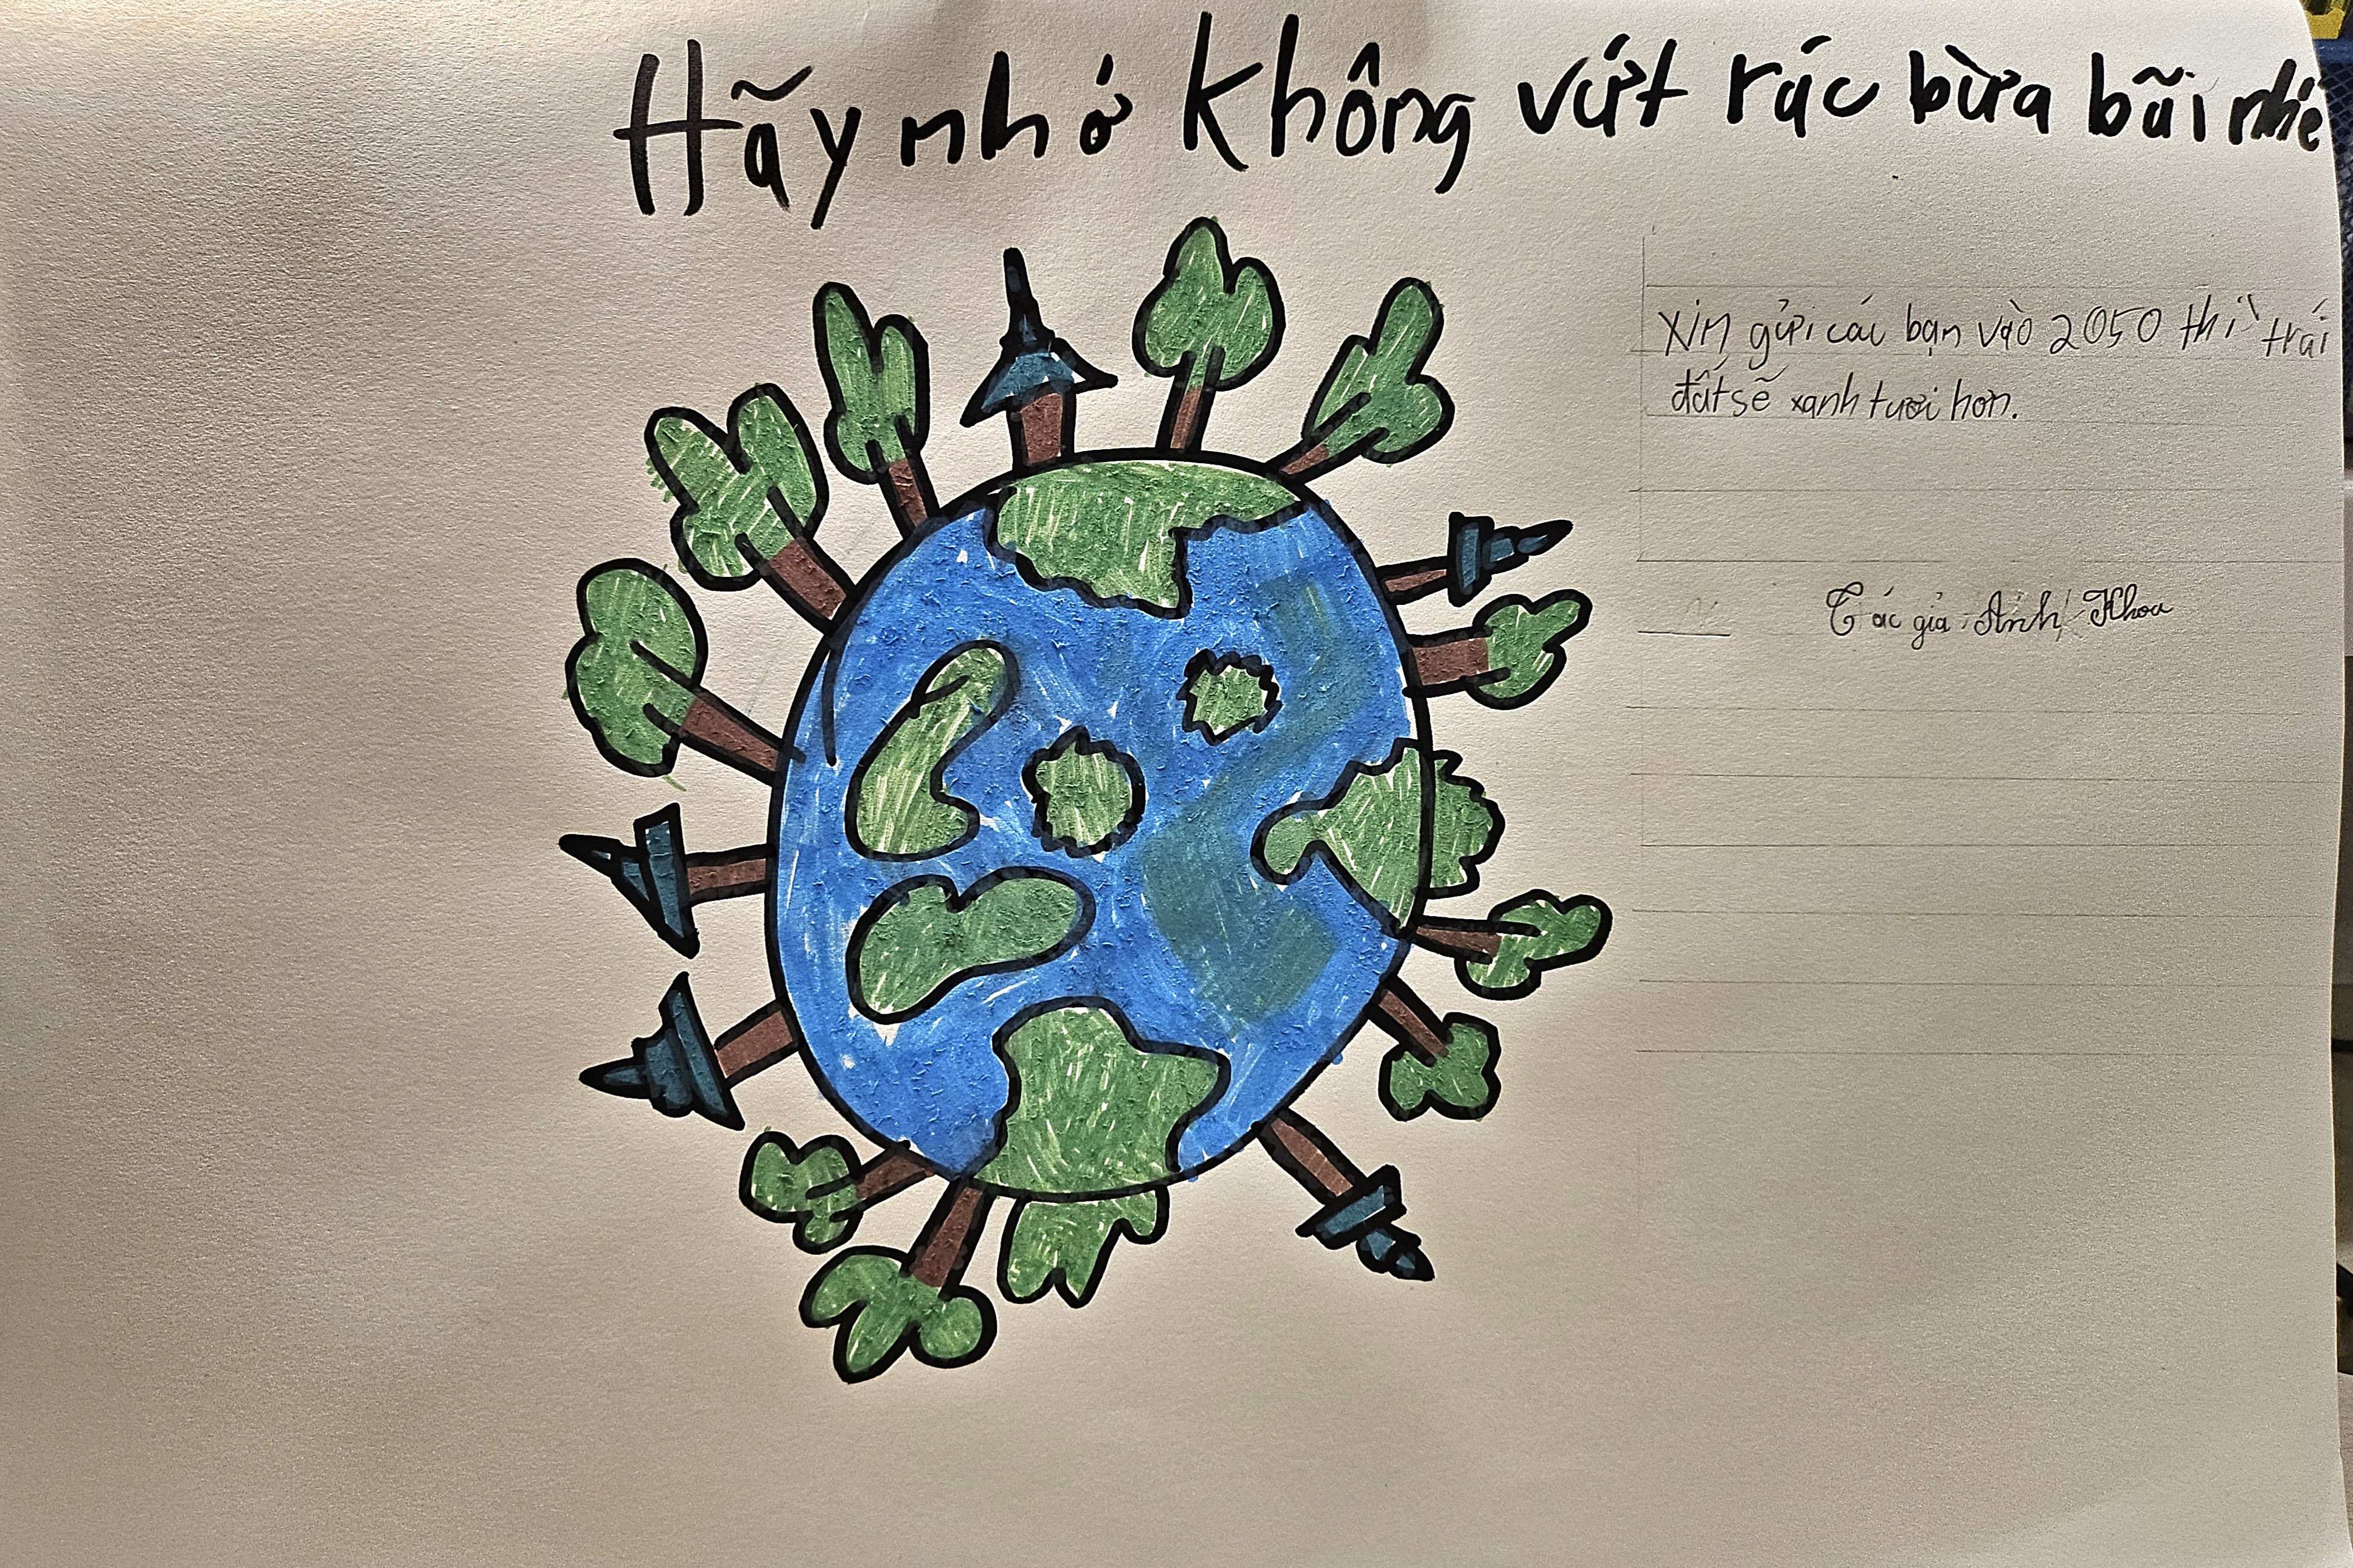 Hãy nhớ không vứt rác bừa bãi nhé
Xin gửi các bạn vào 2050 thì trái
đất sẽ xanh tươi hơn.
Tác giả Anh Khoa